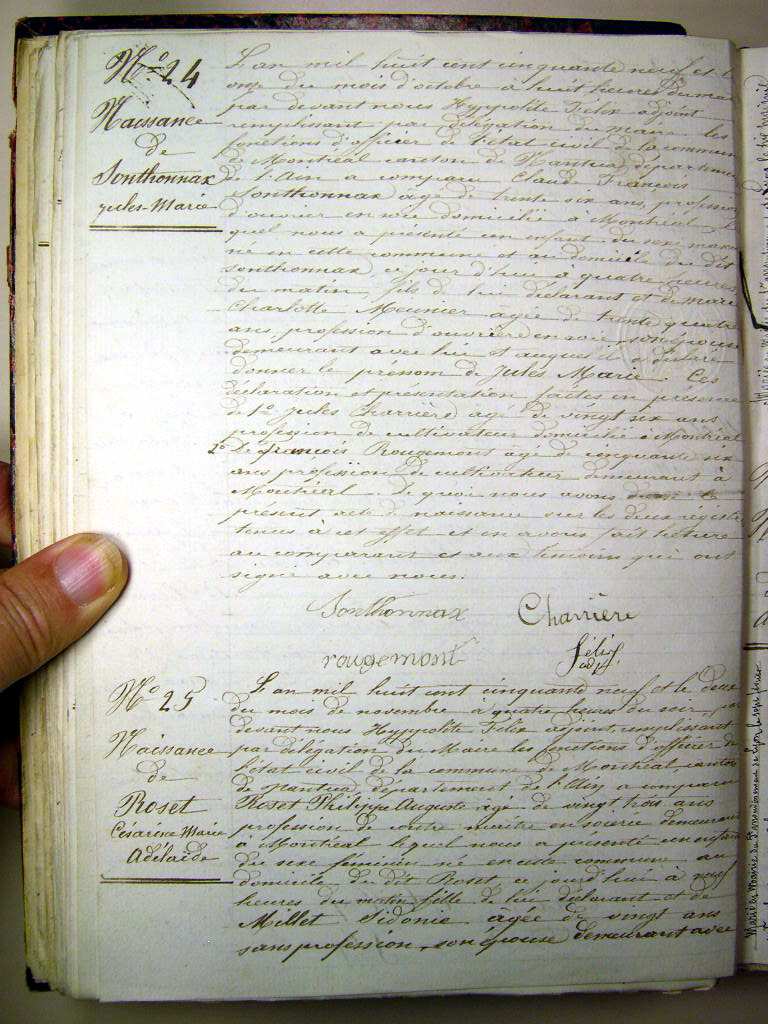 N° 24
Naissance
de
Sonthonnax
jules-Marie
L'an mil huit cent cinquante neuf et le
onze du mois d'octobre à huit heures du mat
par devant nous Hyppolite Félix adjoint
remplissant par délégation du maire les
fonctions d'officier de l'état civil de la commune
de Montréal canton de Nantua, départeme
de l'Ain a comparu Claude François
Sonthonnax âgé de trente six ans, profession
d'ouvrier en soie domicilié à Montréal le
quel nous a présenté un enfant du sexe mascu
né en cette commune et au domicile du dit
Sonthonnax, ce jour d'hui à quatre heures
du matin, fils de lui déclarant et de Marie
Charlotte Meunier âgée de trente quatre
ans profession d'ouvrière en soie, son épouse
demeurant avec lui et auquel il a déclaré
donner le prénom de Jules Marie. Ces
déclaration et présentation faites en présence
de 1° Jules Charrière âgé de vingt six ans
profession de cultivateur domicilié à Montréal
2° De françois Rougemont agé de cinquante six
ans profession de cultivateur demeurant à
Montréal. De quoi nous avons
présent acte de naissance sur les deux registr
tenus à cet effet et en avons fait lecture
au comparant et aux temoins qui ont
signé avec nous.
Sonthonnax Charrière
rougemont Félix
adj.
N° 25
Naissance
de
Roset
Césarine Marie
Adélaïde
L'an mil huit cent cinquante neuf et le deux
du mois de novembre à quatre heures du soir, par
devant nous Hyppolite Félix adjoint, remplissant
par délégation du Maire les fonctions d'officier de
l'état civil de la commune de Montréal, canton
de Nantua, département de l'Ain a comparu
Roset Philippe Auguste âgé de vingt trois ans
profession de contre maître en soierie demeurant
à Montréal lequel nous a présenté un enfant
du sexe féminin né en cette commune au
domicile du dit Roset ce jourd'hui à neuf
heures du matin fille de lui déclarant et de
Millet Sidonie agée de vingt ans
sans profession, son épouse demeurant avec